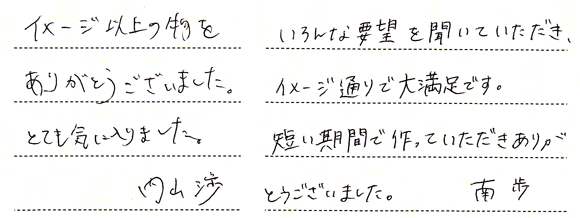 イメージ以上の物を
ありがとうございました。
とても気に入りました。
内山 渉
いろんな要望を聞いていただき、
イメージ通りで大満足です。
短い期間で作っていただきありが
とうございました。 南 歩